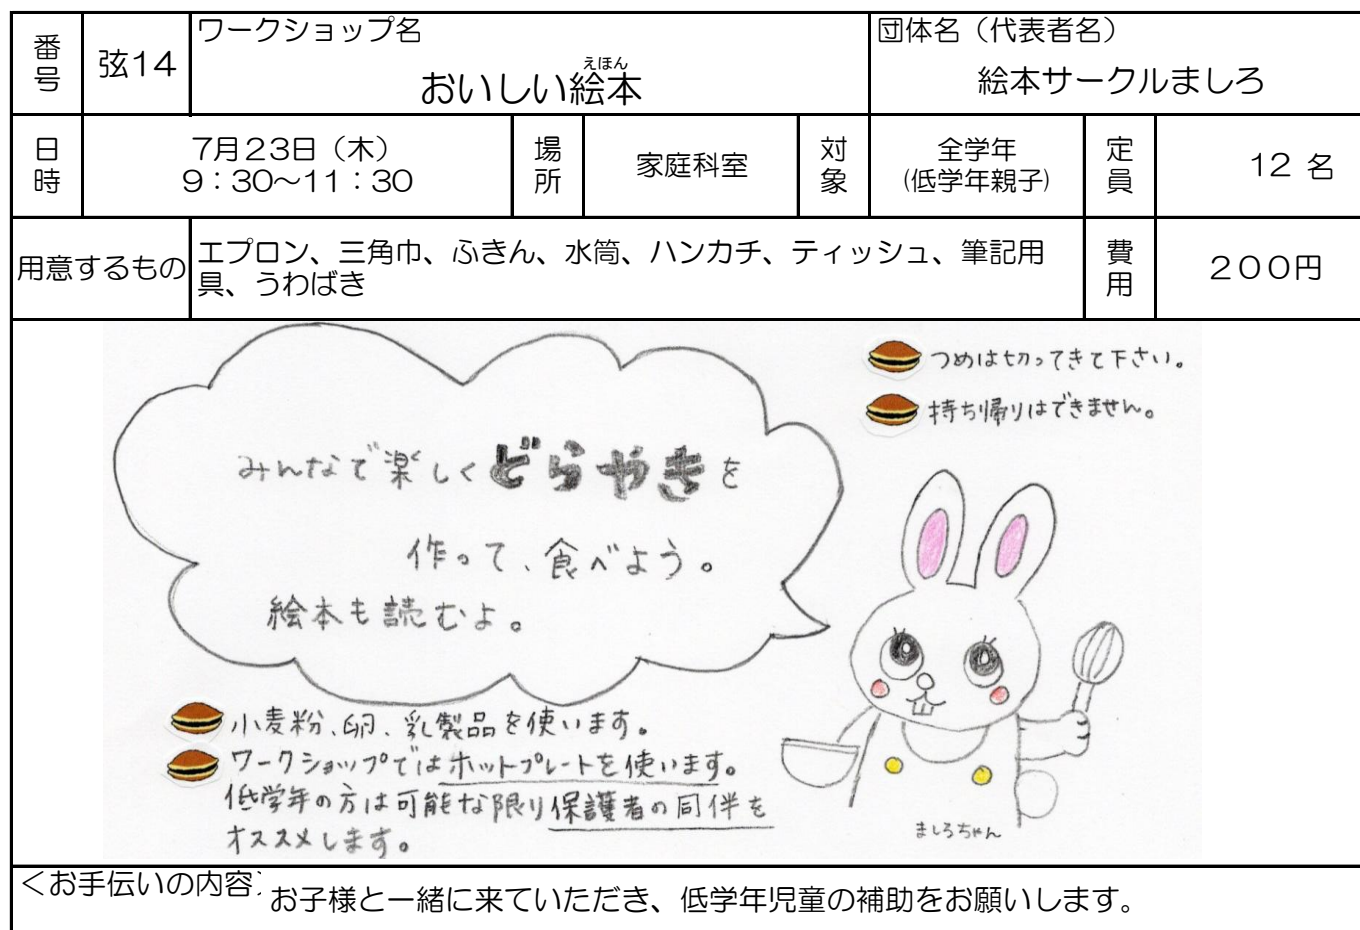 番号
弦14
ワークショップ名
えほん
おいしい絵本
団体名（代表者名）
絵本サークルましろ
日時
7月23日（木）
9：30〜11：30
場所
家庭科室
対象
全学年
(低学年親子)
定員
12 名
用意するもの
エプロン、三角巾、ふきん、水筒、ハンカチ、ティッシュ、筆記用
具、うわばき
費用
200円
つめは切ってきて下さい。
持ち帰りはできません。
みんなで楽しくどらやきを
作って、食べよう。
絵本も読むよ。
小麦粉、卵、乳製品を使います。
ワークショップではホットプレートを使います。
低学年の方は可能な限り保護者の同伴を
オススメします。
ましろちゃん
＜お手伝いの内容
お子様と一緒に来ていただき、低学年児童の補助をお願いします。